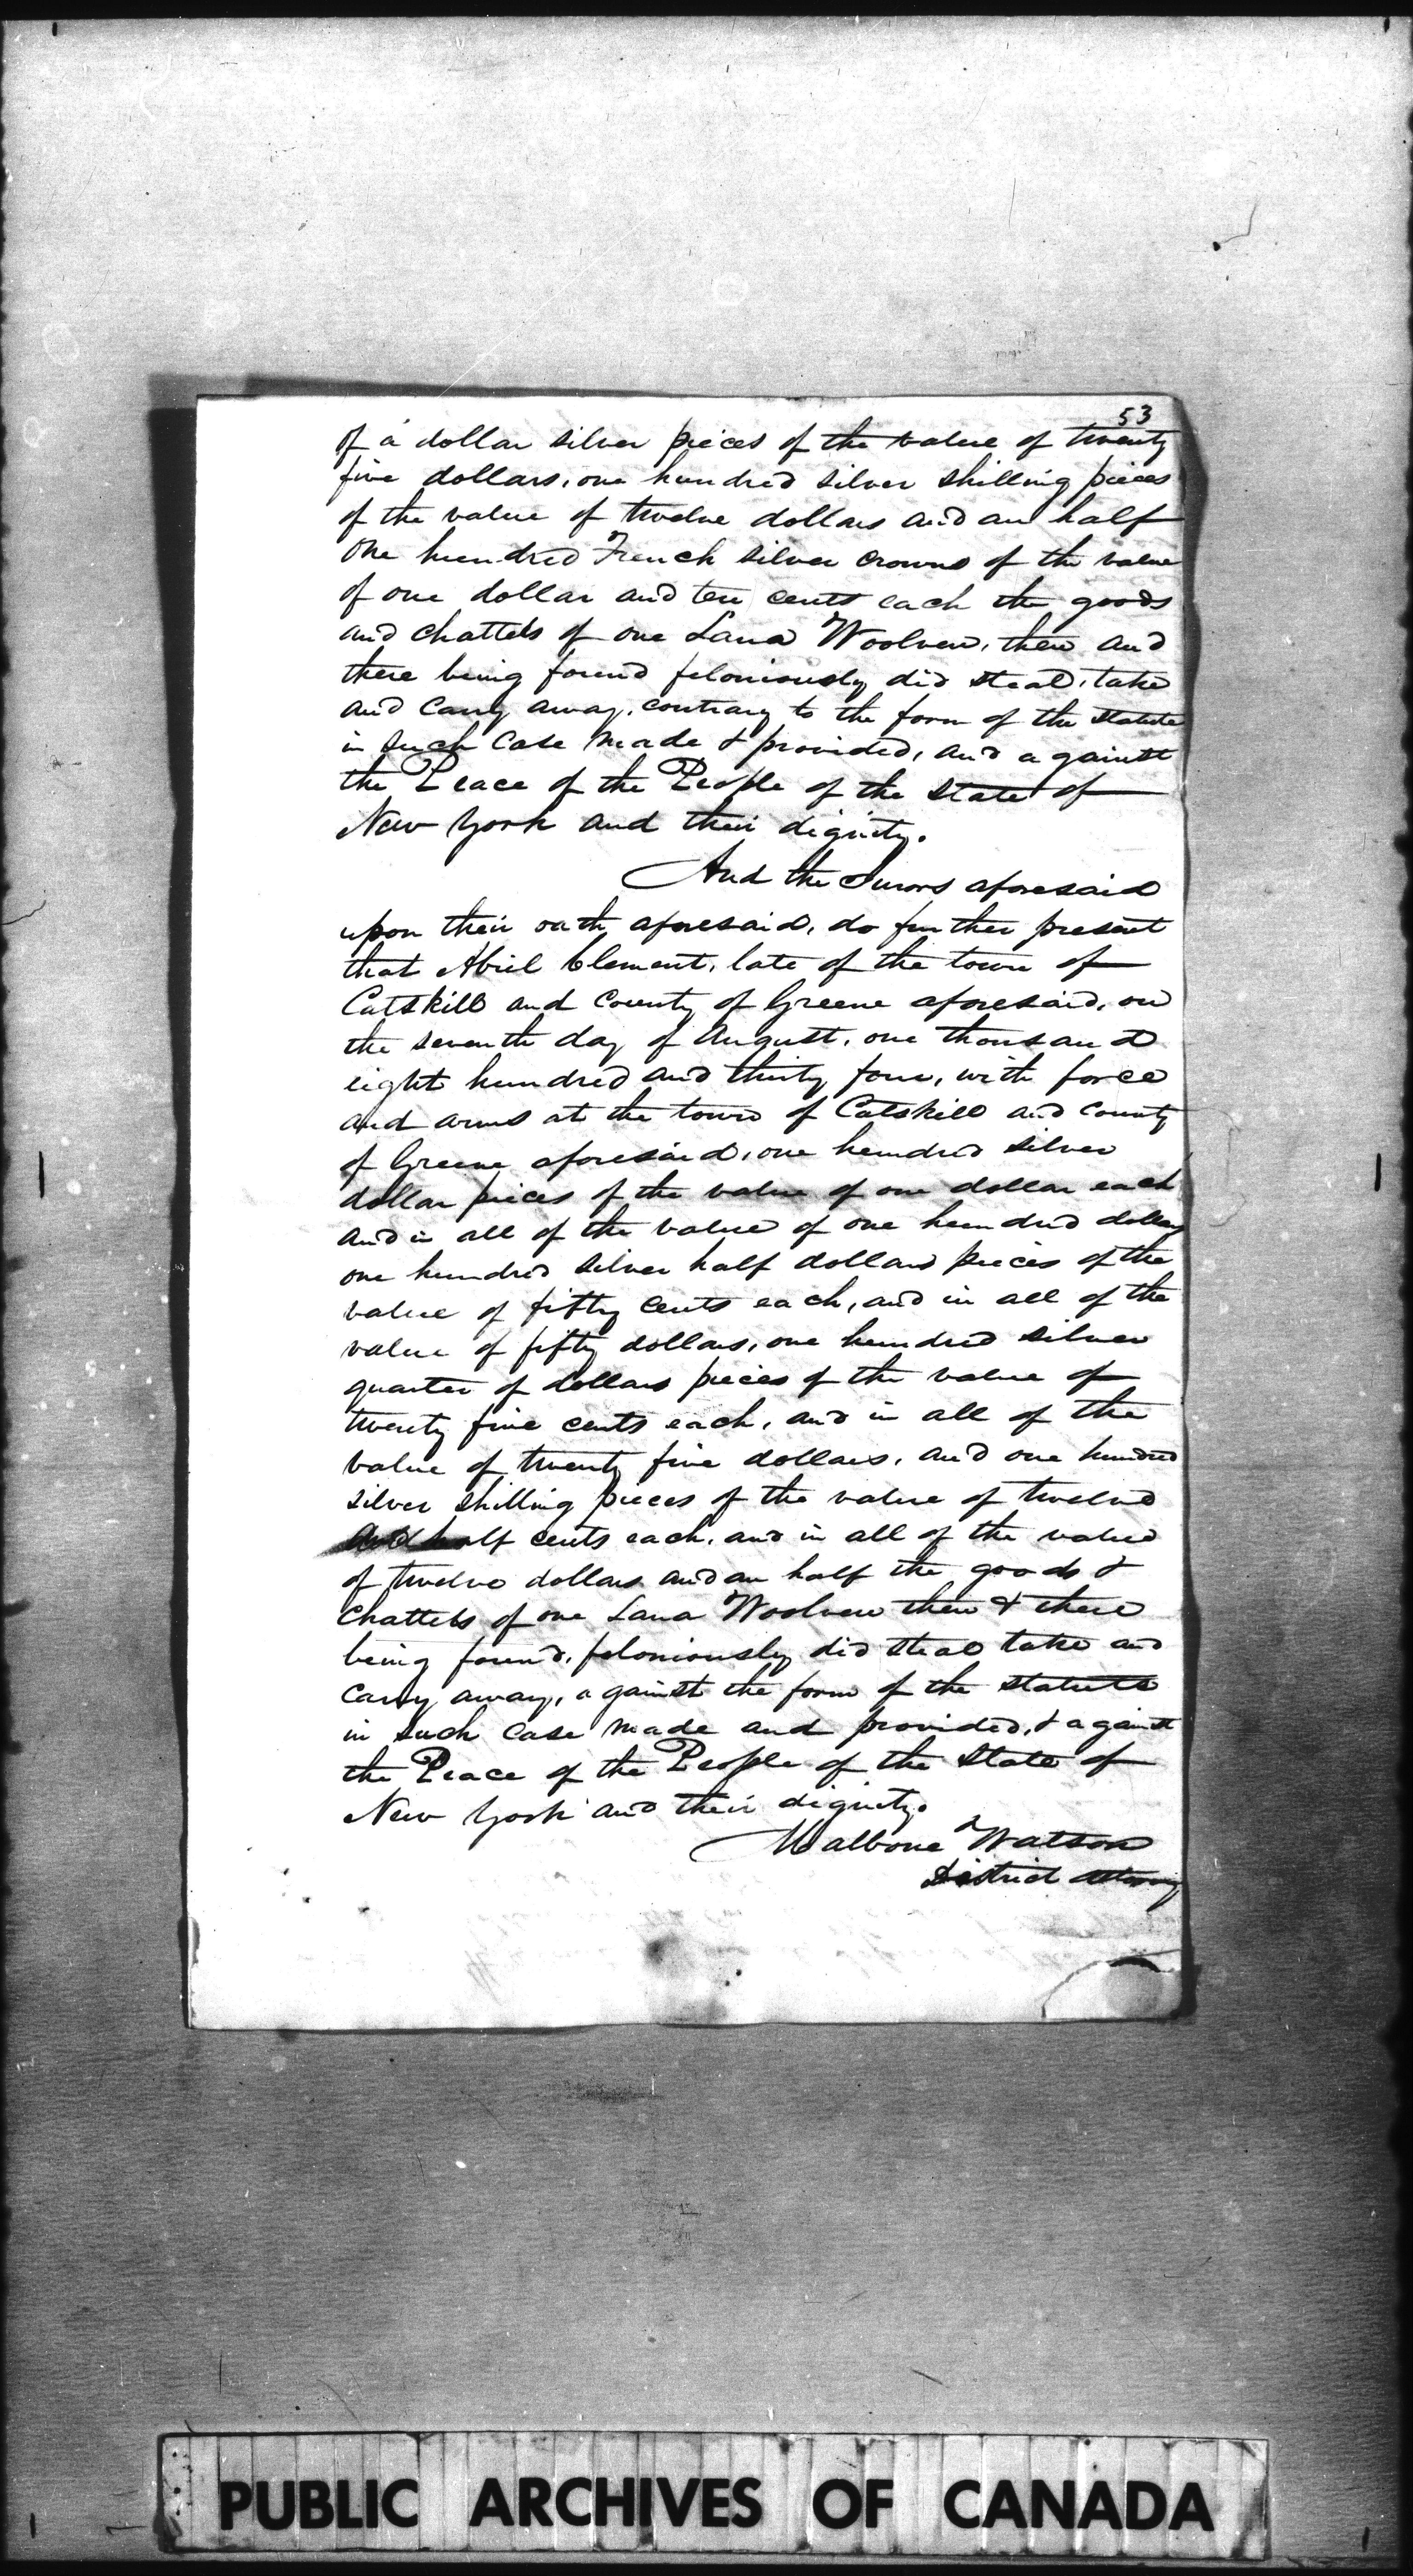 53
of a dollar silver pieces of the value of twenty
five dollars, one hundred silver shilling pieces
of the value of twelve dollars and an half
One hundred French silver crowns of the value
of one dollar and ten cents each the goods
and chattels of one Lana Woolven, then and
there being found feloniously did steal, take
and carry away, contrary to the form of the statute
in such case made & provided, and against
the Peace of the People of the State of
New York and their dignity.
And the Jurors aforesaid
upon their oath aforesaid, do further present
that Abiel Clement, late of the town of
Catskill and County of Greene aforesaid, on
the seventh day of August, one thousand
eight hundred and thirty four, with force
and arms at the town of Catskill and County
of Greene aforesaid, one hundred silver
dollar pieces of the value of one dollar each
and in all of the value of one hundred dollars
one hundred silver half dollars pieces of the
value of fifty cents each, and in all of the
value of fifty dollars, one hundred silver
quarter of dollars pieces of the value of
twenty five cents each, and in all of the
value of twenty five dollars, and one hundred
silver shilling pieces of the value of twelve
and half cents each, and in all of the value
of twelve dollars and an half the goods &
chattels of one Lana Woolven then & there
being found, feloniously did steal take and
carry away, against the form of the statute
in such case made and provided, & against
the Peace of the People of the State of
New York and their dignity.
Malbone Watson
District Attorney
PUBLIC ARCHIVES OF CANADA